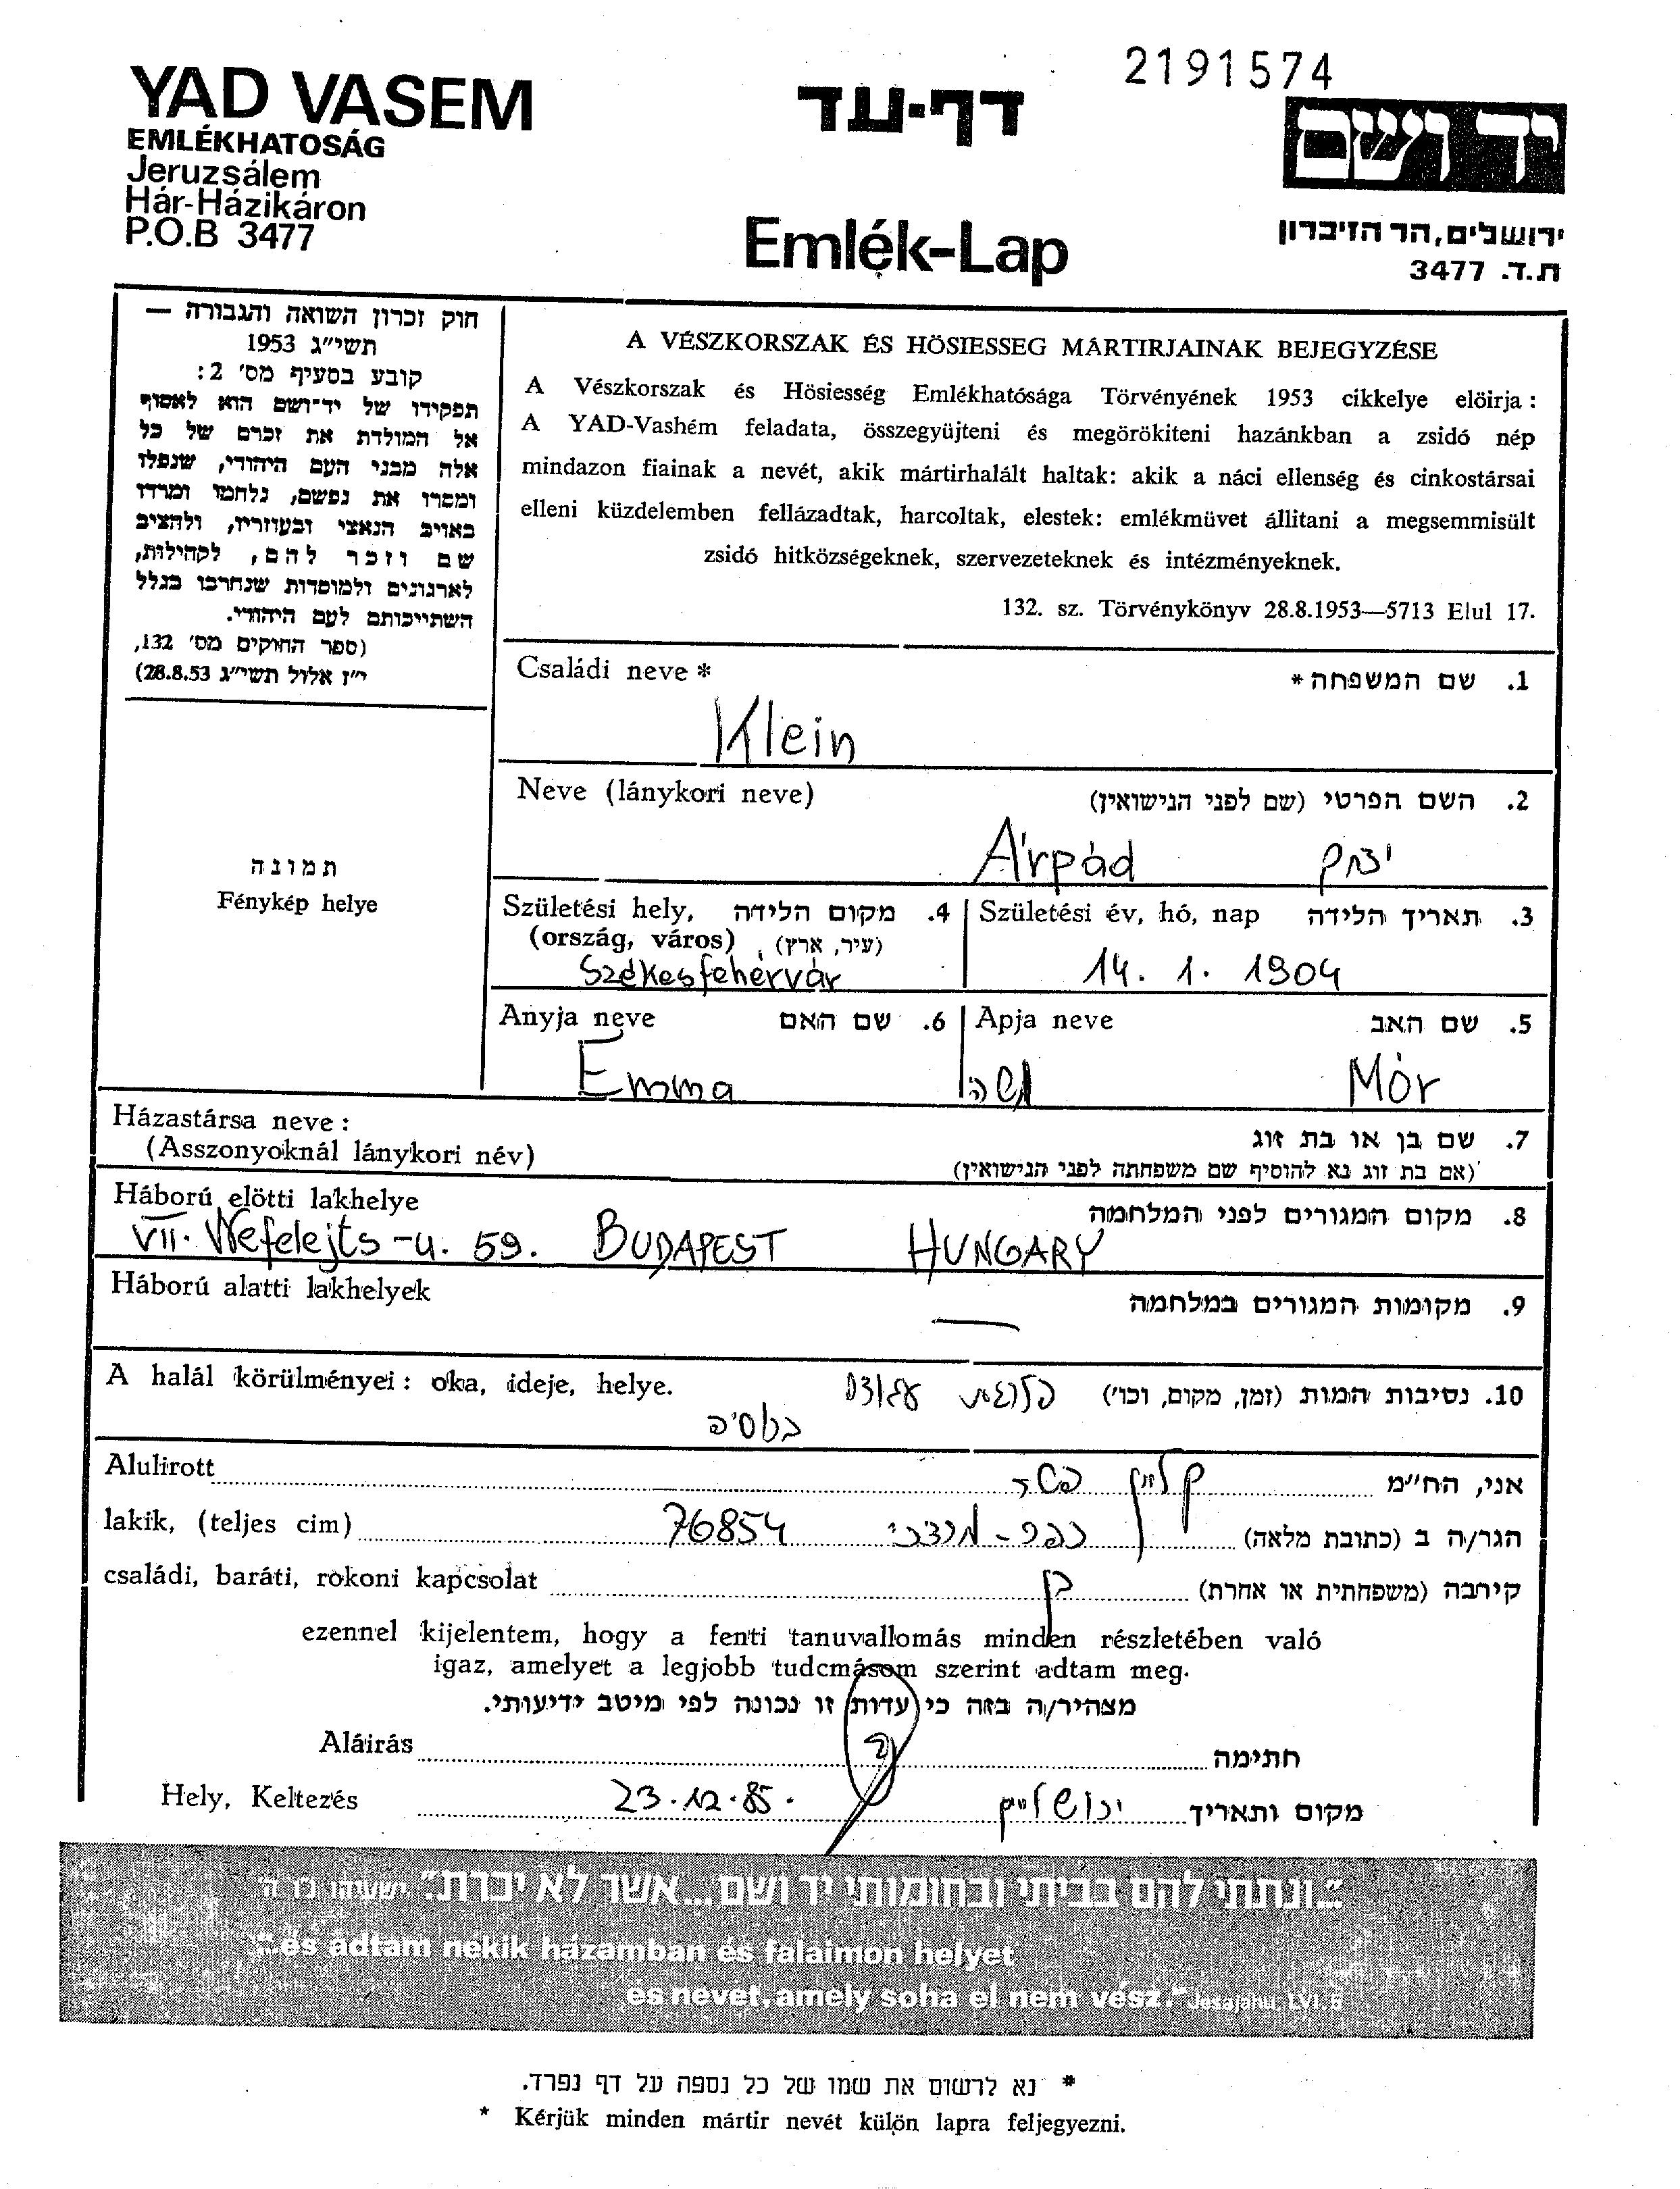 2191574
YAD VASEM
EMLÉKHATOSÁG
Jeruzsálem
Hár-Házikáron
P.O.B 3477
דף-עד
Emlék-Lap
יד ושם
ירושלים, הר הזיכרון
ת.ד. 3477
חוק זכרון השואה והגבורה —
תשי"ג 1953
קובע בסעיף מס' 2:
תפקידו של יד-ושם הוא לאסוף
אל המולדת את זכרם של כל
אלה מבני העם היהודי, שנפלו
ומסרו את נפשם, נלחמו ומרדו
באויב הנאצי ובעוזריו, ולהציב
שם וזכר להם, לקהילות,
לארגונים ולמוסדות שנחרבו בגלל
השתייכותם לעם היהודי.
(ספר החוקים מס' 132,
י"ז אלול תשי"ג 28.8.53)
תמונה
Fénykép helye
A VÉSZKORSZAK ÉS HÖSIESSEG MÁRTIRJAINAK BEJEGYZÉSE
A Vészkorszak és Hösiesség Emlékhatósága Törvényének 1953 cikkelye elöirja :
A YAD-Vashém feladata, összegyüjteni és megörökiteni hazánkban a zsidó nép
mindazon fiainak a nevét, akik mártirhalált haltak: akik a náci ellenség és cinkostársai
elleni küzdelemben fellázadtak, harcoltak, elestek: emlékmüvet állitani a megsemmisült
zsidó hitközségeknek, szervezeteknek és intézményeknek.
132. sz. Törvénykönyv 28.8.1953—5713 Elul 17.
Családi neve * 1. שם המשפחה*
Klein
Neve (lánykori neve) 2. השם הפרטי (שם לפני הנישואין)
Árpád יצחק
Születési hely, 4. מקום הלידה
(ország, város) (עיר, ארץ)
Székesfehérvár
Születési év, hó, nap 3. תאריך הלידה
14. 1. 1904
Anyja neve 6. שם האם
Emma
Apja neve 5. שם האב
משה Mór
Házastársa neve : 7. שם בן או בת זוג
(Asszonyoknál lánykori név) (אם בת זוג נא להוסיף שם משפחתה לפני הנישואין)
Háború elötti lakhelye 8. מקום המגורים לפני המלחמה
VII. Nefelejts-u. 59. BUDAPEST HUNGARY
Háború alatti lakhelyek 9. מקומות המגורים במלחמה
—
A halál körülményei : oka, ideje, helye. 10. נסיבות המות (זמן, מקום, וכו') פלוגות עבודה
ברוסיה
Alulirott אני, הח"מ קליין
lakik, (teljes cim) הגר/ה ב (כתובת מלאה) כפר-מרדכי 76854
családi, baráti, rokoni kapcsolat קירבה (משפחתית או אחרת) בן
ezennel kijelentem, hogy a fenti tanuvallomás minden részletében való
igaz, amelyet a legjobb tudcmásom szerint adtam meg.
מצהיר/ה בזה כי עדות זו נכונה לפי מיטב ידיעותי.
Aláirás חתימה
Hely, Keltezés מקום ותאריך ירושלים 23.12.85.
"...ונתתי להם בביתי ובחומותי יד ושם...אשר לא יכרת." ישעיהו נו ה'
"...és adtam nekik házamban és falaimon helyet
és nevet, amely soha el nem vész." Jesajahu, LVI. 5
* נא לרשום את שמו של כל נספה על דף נפרד.
* Kérjük minden mártir nevét külön lapra feljegyezni.